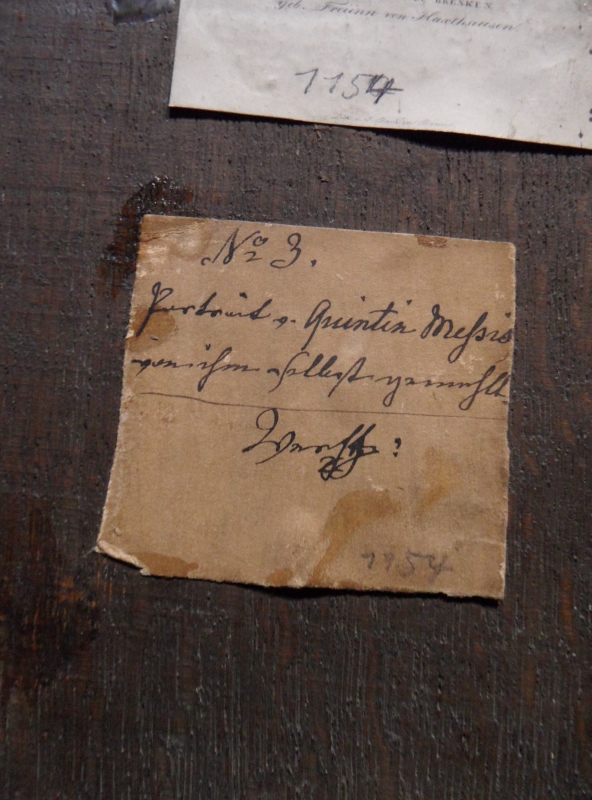 BRENKEN
geb. Freiinn von Haxthausen
1154
No 3.
Portrait v. Quintin Meßis
von ihm selbst gemahlt
Werth:
1154